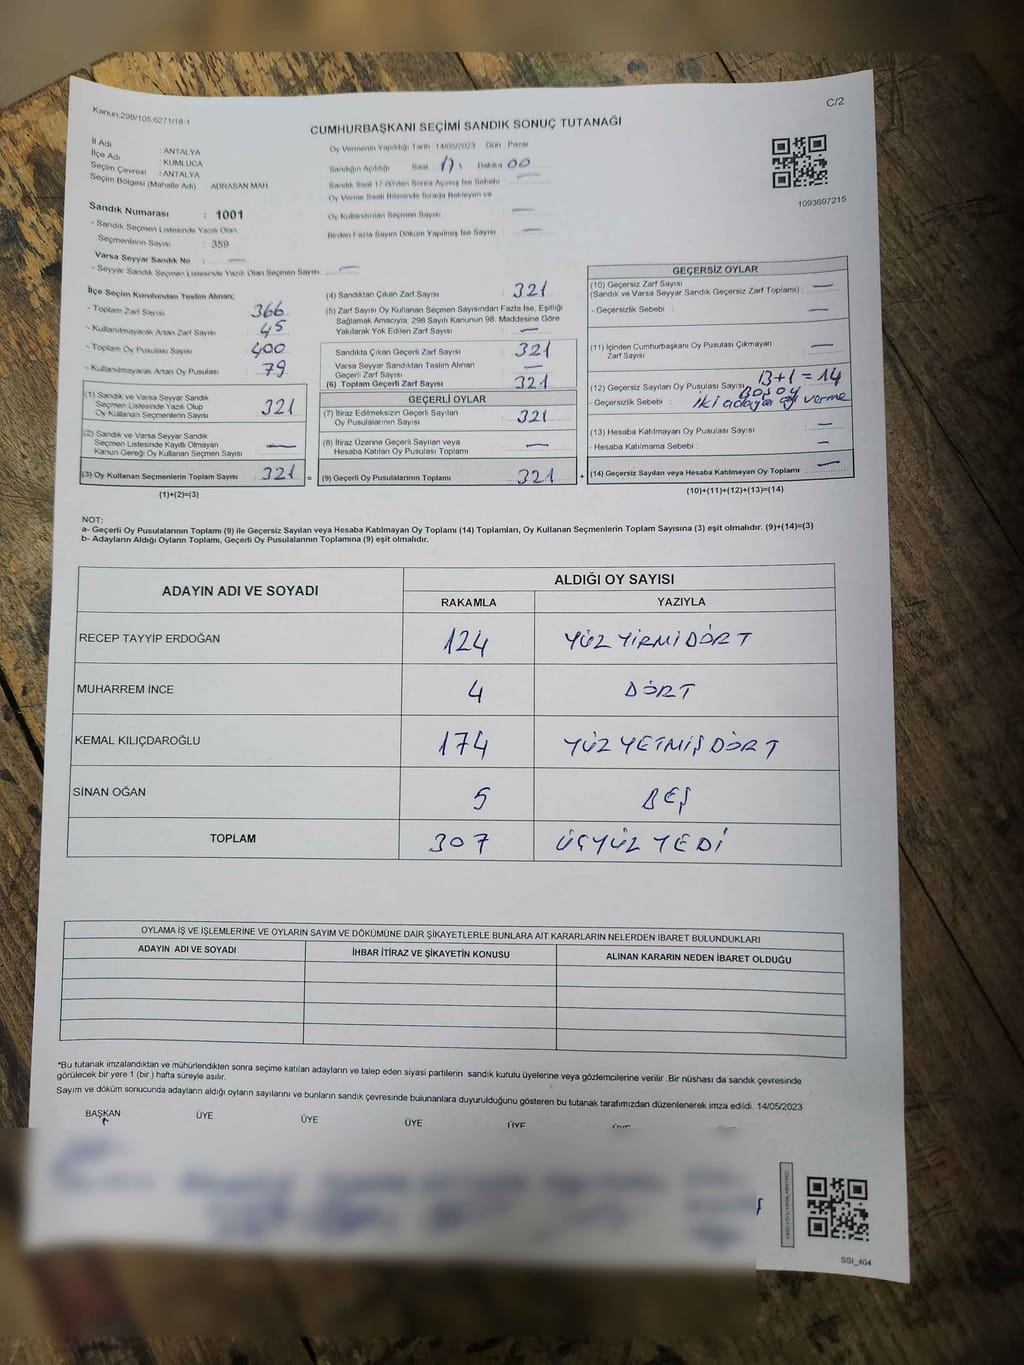 Kanun:298/105,6271/18-1
C/2
CUMHURBAŞKANI SEÇİMİ SANDIK SONUÇ TUTANAĞI
İl Adı : ANTALYA
İlçe Adı : KUMLUCA
Seçim Çevresi : ANTALYA
Seçim Bölgesi (Mahalle Adı) : ADRASAN MAH.
Sandık Numarası : 1001
- Sandık Seçmen Listesinde Yazılı Olan
Seçmenlerin Sayısı : 359
Varsa Seyyar Sandık No : —
- Seyyar Sandık Seçmen Listesinde Yazılı Olan Seçmen Sayısı: —
Oy Vermenin Yapıldığı Tarih : 14/05/2023 Gün Pazar
Sandığın Açıldığı Saat 17: Dakika 00
Sandık Saat 17:00'den Sonra Açılmış İse Sebebi : —
Oy Verme Saati Bitiminde Sırada Bekleyen ve
Oy Kullandırılan Seçmen Sayısı : —
Birden Fazla Sayım Döküm Yapılmış İse Sayısı : —
1093697215
İlçe Seçim Kurulundan Teslim Alınan;
- Toplam Zarf Sayısı : 366
- Kullanılmayarak Artan Zarf Sayısı : 45
- Toplam Oy Pusulası Sayısı : 400
- Kullanılmayarak Artan Oy Pusulası : 79
(1) Sandık ve Varsa Seyyar Sandık
Seçmen Listesinde Yazılı Olup
Oy Kullanan Seçmenlerin Sayısı : 321
(2) Sandık ve Varsa Seyyar Sandık
Seçmen Listesinde Kayıtlı Olmayan
Kanun Gereği Oy Kullanan Seçmen Sayısı : —
(3) Oy Kullanan Seçmenlerin Toplam Sayısı : 321 =
(1)+(2)=(3)
(4) Sandıktan Çıkan Zarf Sayısı : 321
(5) Zarf Sayısı Oy Kullanan Seçmen Sayısından Fazla İse, Eşitliği
Sağlamak Amacıyla, 298 Sayılı Kanunun 98. Maddesine Göre
Yakılarak Yok Edilen Zarf Sayısı : —
Sandıkta Çıkan Geçerli Zarf Sayısı : 321
Varsa Seyyar Sandıktan Teslim Alınan
Geçerli Zarf Sayısı : —
(6) Toplam Geçerli Zarf Sayısı : 321
GEÇERLİ OYLAR
(7) İtiraz Edilmeksizin Geçerli Sayılan
Oy Pusulalarının Sayısı : 321
(8) İtiraz Üzerine Geçerli Sayılan veya
Hesaba Katılan Oy Pusulası Toplamı : —
(9) Geçerli Oy Pusulalarının Toplamı : 321 +
GEÇERSİZ OYLAR
(10) Geçersiz Zarf Sayısı
(Sandık ve Varsa Seyyar Sandık Geçersiz Zarf Toplamı) : —
- Geçersizlik Sebebi : —
(11) İçinden Cumhurbaşkanı Oy Pusulası Çıkmayan
Zarf Sayısı : —
(12) Geçersiz Sayılan Oy Pusulası Sayısı : 13+1=14
- Geçersizlik Sebebi : BOŞ OY
iki adaya oy verme
(13) Hesaba Katılmayan Oy Pusulası Sayısı : —
- Hesaba Katılmama Sebebi : —
(14) Geçersiz Sayılan veya Hesaba Katılmayan Oy Toplamı : —
(10)+(11)+(12)+(13)=(14)
NOT:
a- Geçerli Oy Pusulalarının Toplamı (9) ile Geçersiz Sayılan veya Hesaba Katılmayan Oy Toplamı (14) Toplamları, Oy Kullanan Seçmenlerin Toplam Sayısına (3) eşit olmalıdır. (9)+(14)=(3)
b- Adayların Aldığı Oyların Toplamı, Geçerli Oy Pusulalarının Toplamına (9) eşit olmalıdır.
ADAYIN ADI VE SOYADI
ALDIĞI OY SAYISI
RAKAMLA YAZIYLA
RECEP TAYYİP ERDOĞAN 124 YÜZ YİRMİ DÖRT
MUHARREM İNCE 4 DÖRT
KEMAL KILIÇDAROĞLU 174 YÜZ YETMİŞ DÖRT
SİNAN OĞAN 5 BEŞ
TOPLAM 307 ÜÇYÜZ YEDİ
OYLAMA İŞ VE İŞLEMLERİNE VE OYLARIN SAYIM VE DÖKÜMÜNE DAİR ŞİKAYETLERLE BUNLARA AİT KARARLARIN NELERDEN İBARET BULUNDUKLARI
ADAYIN ADI VE SOYADI İHBAR İTİRAZ VE ŞİKAYETİN KONUSU ALINAN KARARIN NEDEN İBARET OLDUĞU
*Bu tutanak imzalandıktan ve mühürlendikten sonra seçime katılan adayların ve talep eden siyasi partilerin sandık kurulu üyelerine veya gözlemcilerine verilir .Bir nüshası da sandık çevresinde
görülecek bir yere 1 (bir ) hafta süreyle asılır.
Sayım ve döküm sonucunda adayların aldığı oyların sayılarını ve bunların sandık çevresinde bulunanlara duyurulduğunu gösteren bu tutanak tarafımızdan düzenlenerek imza edildi. 14/05/2023
BAŞKAN ÜYE ÜYE ÜYE ÜYE ÜYE
SSI_404